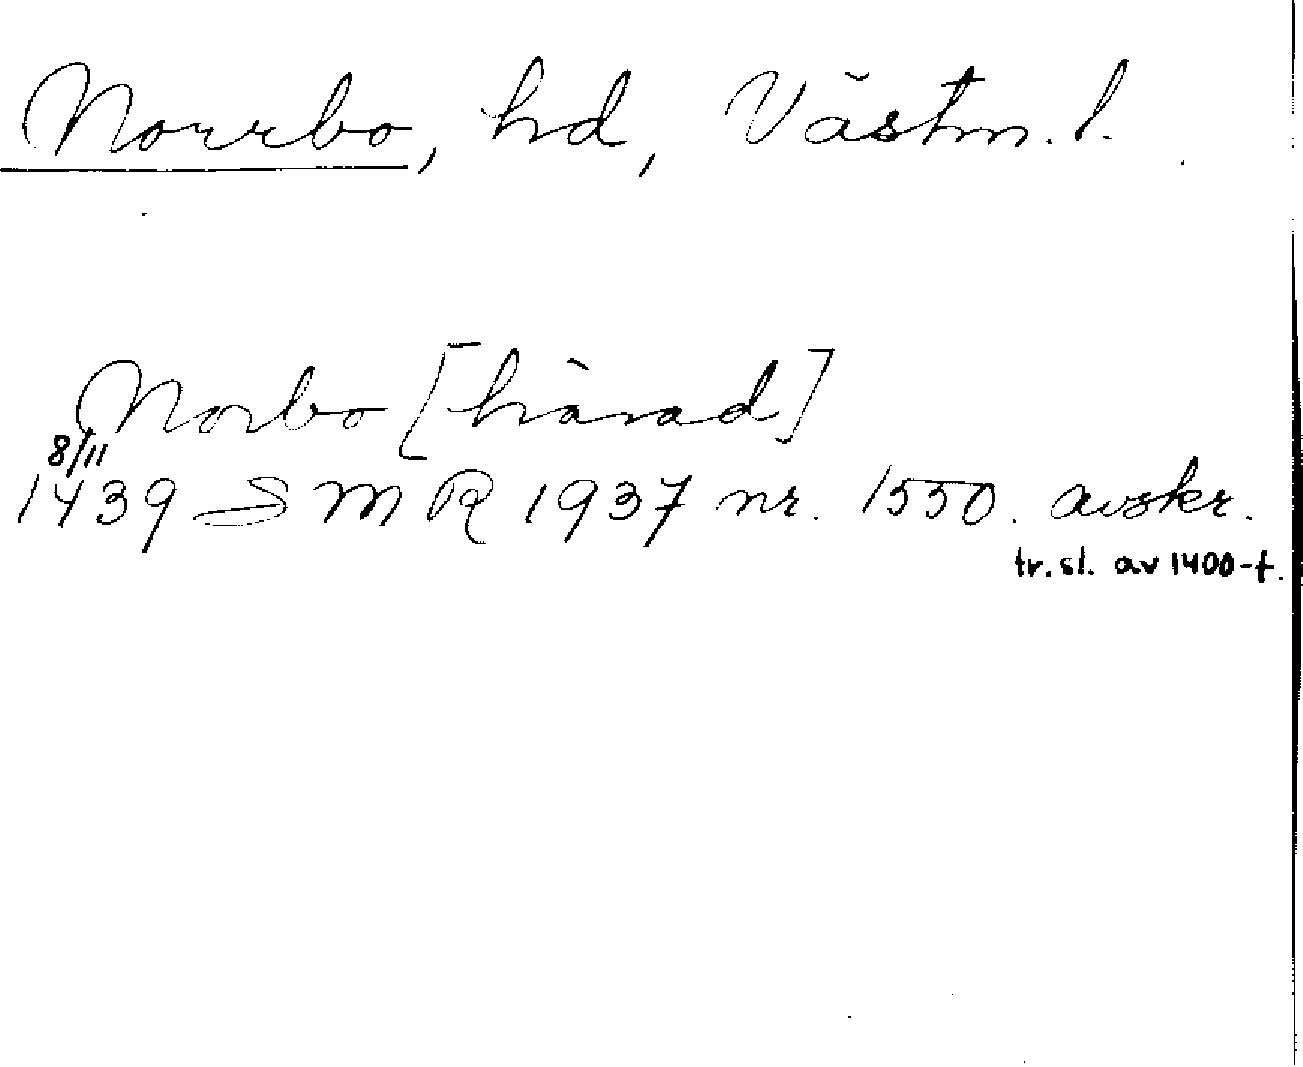 Norrbo, hd, Västm. l.
Norbo [härad]
8/11
1439 SMR 1937 nr. 1550. avskr.
tr. sl. av 1400-t.